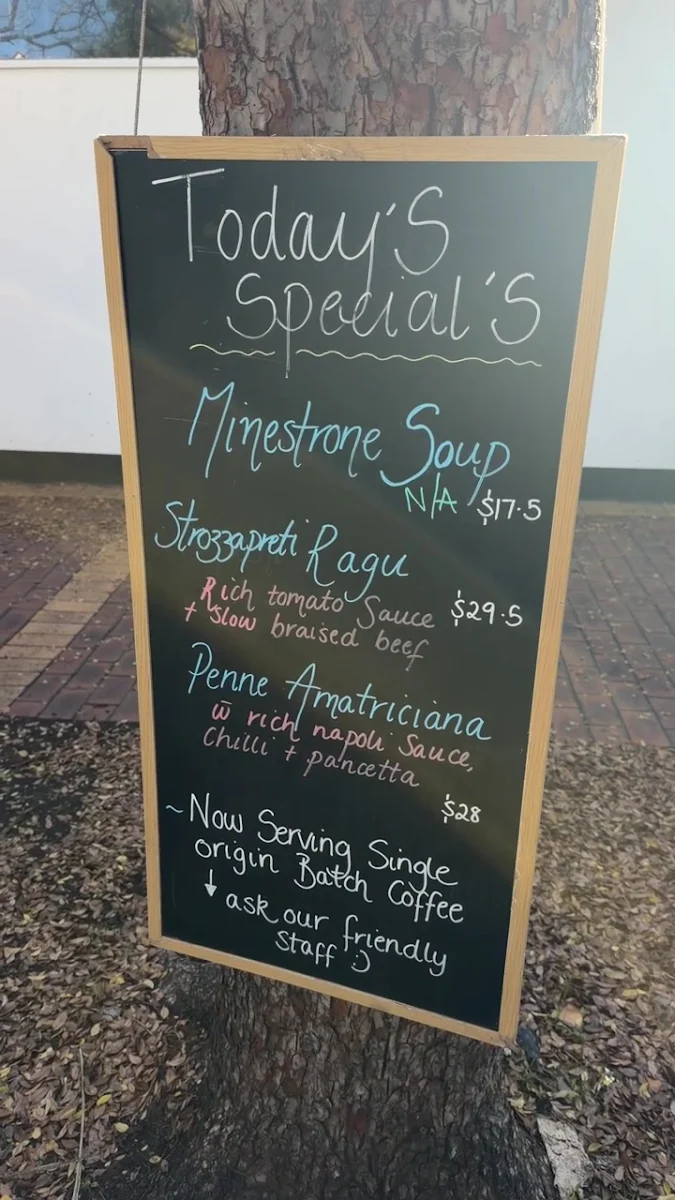 Today'S
Special'S
Minestrone Soup
N/A $17.5
Strozzapreti Ragu
Rich tomato Sauce $29.5
+ Slow braised beef
Penne Amatriciana
w̄ rich napoli Sauce,
Chilli + pancetta
$28
~Now Serving Single
origin Batch Coffee
↓ ask our friendly
Staff :)